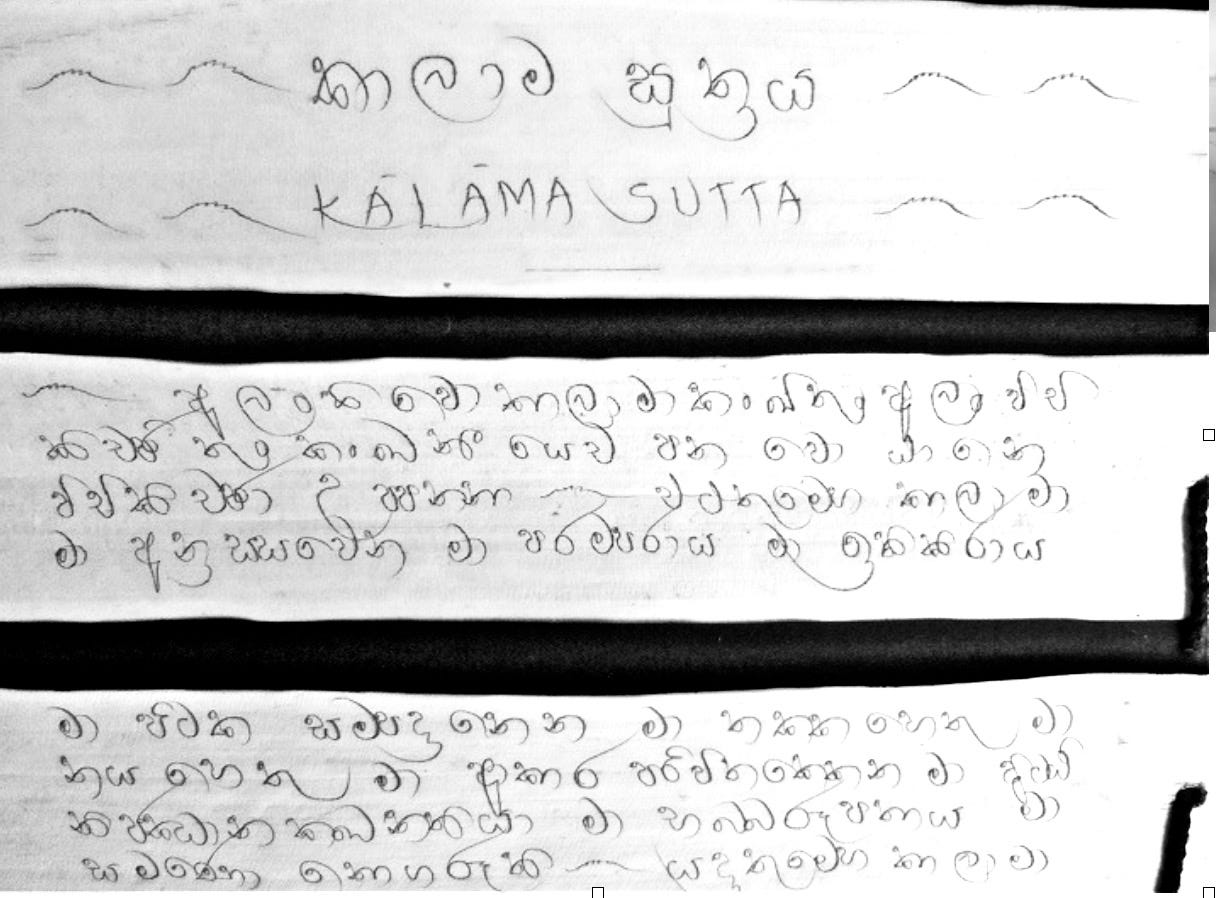 කාලාම සූත්‍රය
KĀLĀMA SUTTA
අලංහි වො කාලාමා කංඛිතුං අලං විචි
කිච්ඡිතුං කංඛනීයෙව පන වො ඨානෙ
විචිකිච්ඡා උප්පන්නා එථ තුම්හෙ කාලාමා
මා අනුස්සවෙන මා පරම්පරාය මා ඉතිකිරාය
මා පිටක සම්පදානෙන මා තක්කහෙතු මා
නයහෙතු මා ආකාර පරිවිතක්කෙන මා දිට්ඨි
නිජ්ඣානක්ඛන්තියා මා භබ්බරූපතාය මා
සමණො නො ගරූති යදා තුම්හෙ කාලාමා